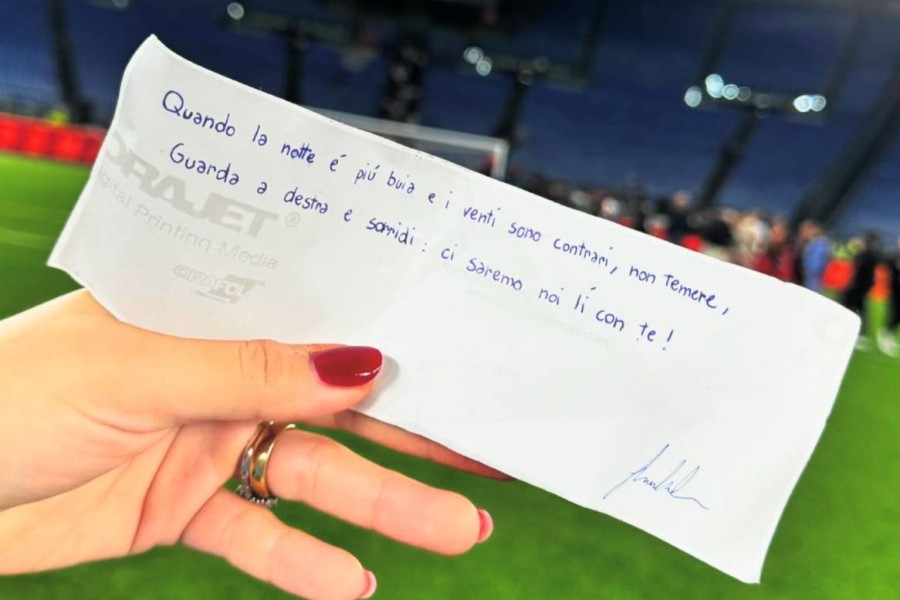 Quando la notte é piú buia e i venti sono contrari, non temere,
Guarda a destra e sorridi: ci saremo noi lí con te!
ORAJET®
Digital Printing Media